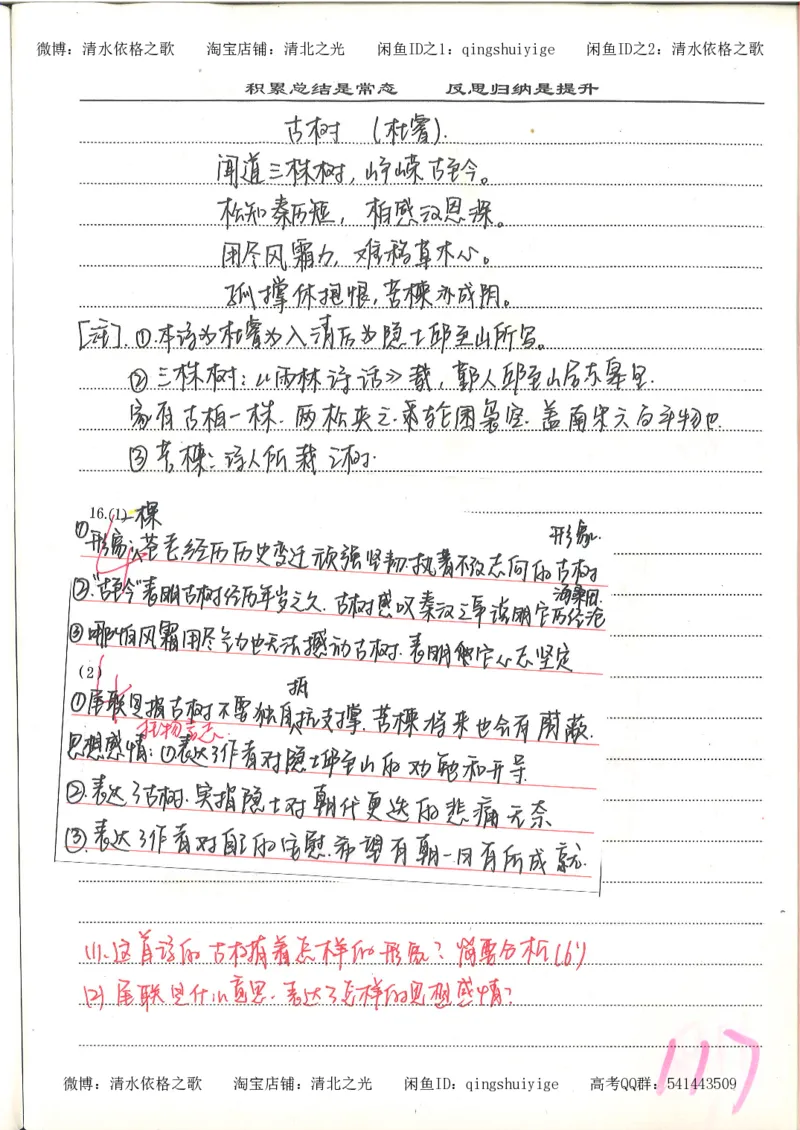 微博：清水依格之歌 淘宝店铺：清北之光 闲鱼ID之1：qingshuiyige 闲鱼ID之2：清水依格之歌
积累总结是常态 反思归纳是提升
古树 (杜濬).
闻道三株树，峥嵘古至今。
松知秦历短，柏感汉恩深。
用尽风霜力，难移草木心。
孤撑休抱恨，苦楝亦成阴。
[注].①本诗为杜濬为入清后为隐士邱至山所写。
②三株树：《雨林诗话》载，鄞人邱至山居东皋里.
家有古柏一株.两松夹之.轮囷袅空.盖南宋六百年物也
③苦楝：诗人所栽之树.
16.(1)一棵
形象.
①形象：苍老经历历史变迁顽强坚韧执着不改志向的古树
②."古至今"表明古树经历年岁之久.古树感叹秦汉之事说明它历经沧
海桑田.
③哪怕有风霜用尽全力也无法撼动古树.表明它心志坚定
(2)
①尾联是指古树不需独自抗支撑.苦楝将来也会有荫蔽.
托物言志.
思想感情：①表达了作者对隐士邱至山的劝勉和开导
②.表达了古树.实指隐士对朝代更迭的悲痛无奈
③.表达了作者对自己的宽慰.希望有朝一日有所成就.
(1).这首诗的古树有着怎样的形象？简要分析(6')
(2)尾联是什么意思.表达了怎样的思想感情？
117
微博：清水依格之歌 淘宝店铺：清北之光 闲鱼ID：qingshuiyige 高考QQ群：541443509